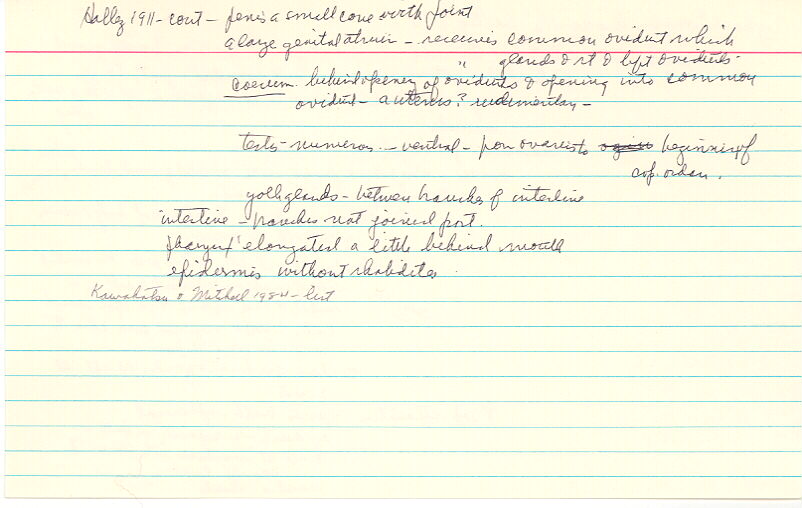 Hallez 1911 - cont - penis a small cone with point
a large genital atrium - receives common oviduct which
" glands & rt & left oviducts -
coecum behind opening of oviducts & opening into common
oviduct - a uterus? rudimentary -
testes - numerous - ventral - from ovaries to beginning of
cop. organ.
yolk glands - between branches of intestine
intestine - branches not joined post.
pharynx elongated a little behind mouth
epidermis without rhabdites
Kawakatsu & Mitchell 1984 - list